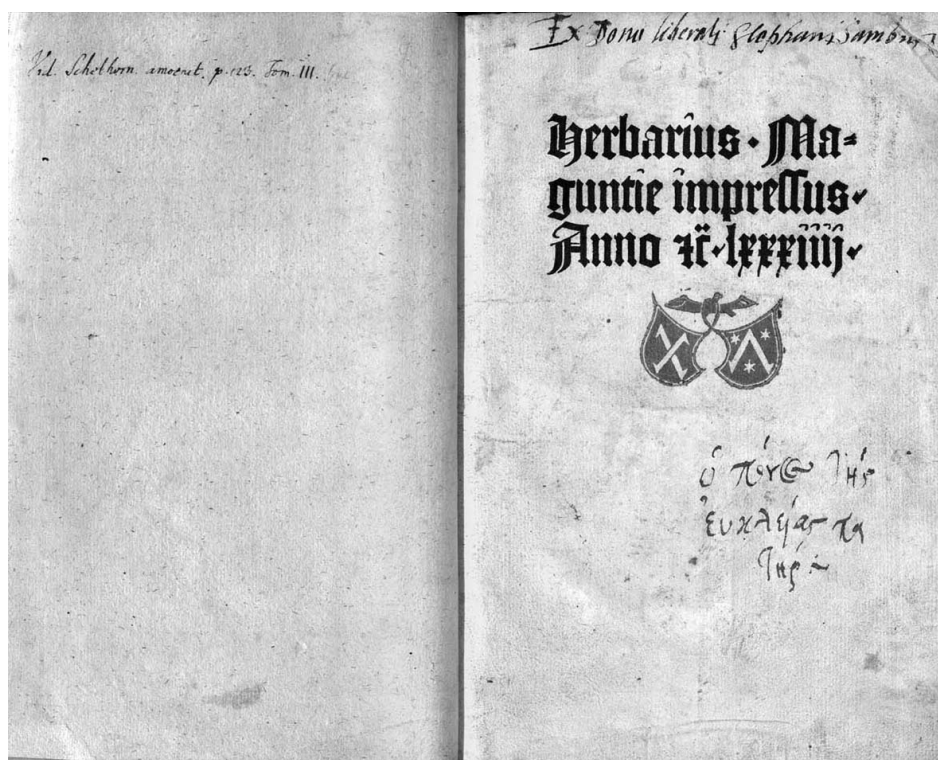 Vid. Schelhorn. amoenit. p. 123. Tom. III.
Ex Dono liberali Stephani
Herbarius · Ma⸗
guntie impressus·
Anno ⁊c̃·lxxxiiij·
ὁ πόνος τῆς
ἐυκλείας πα
τήρ